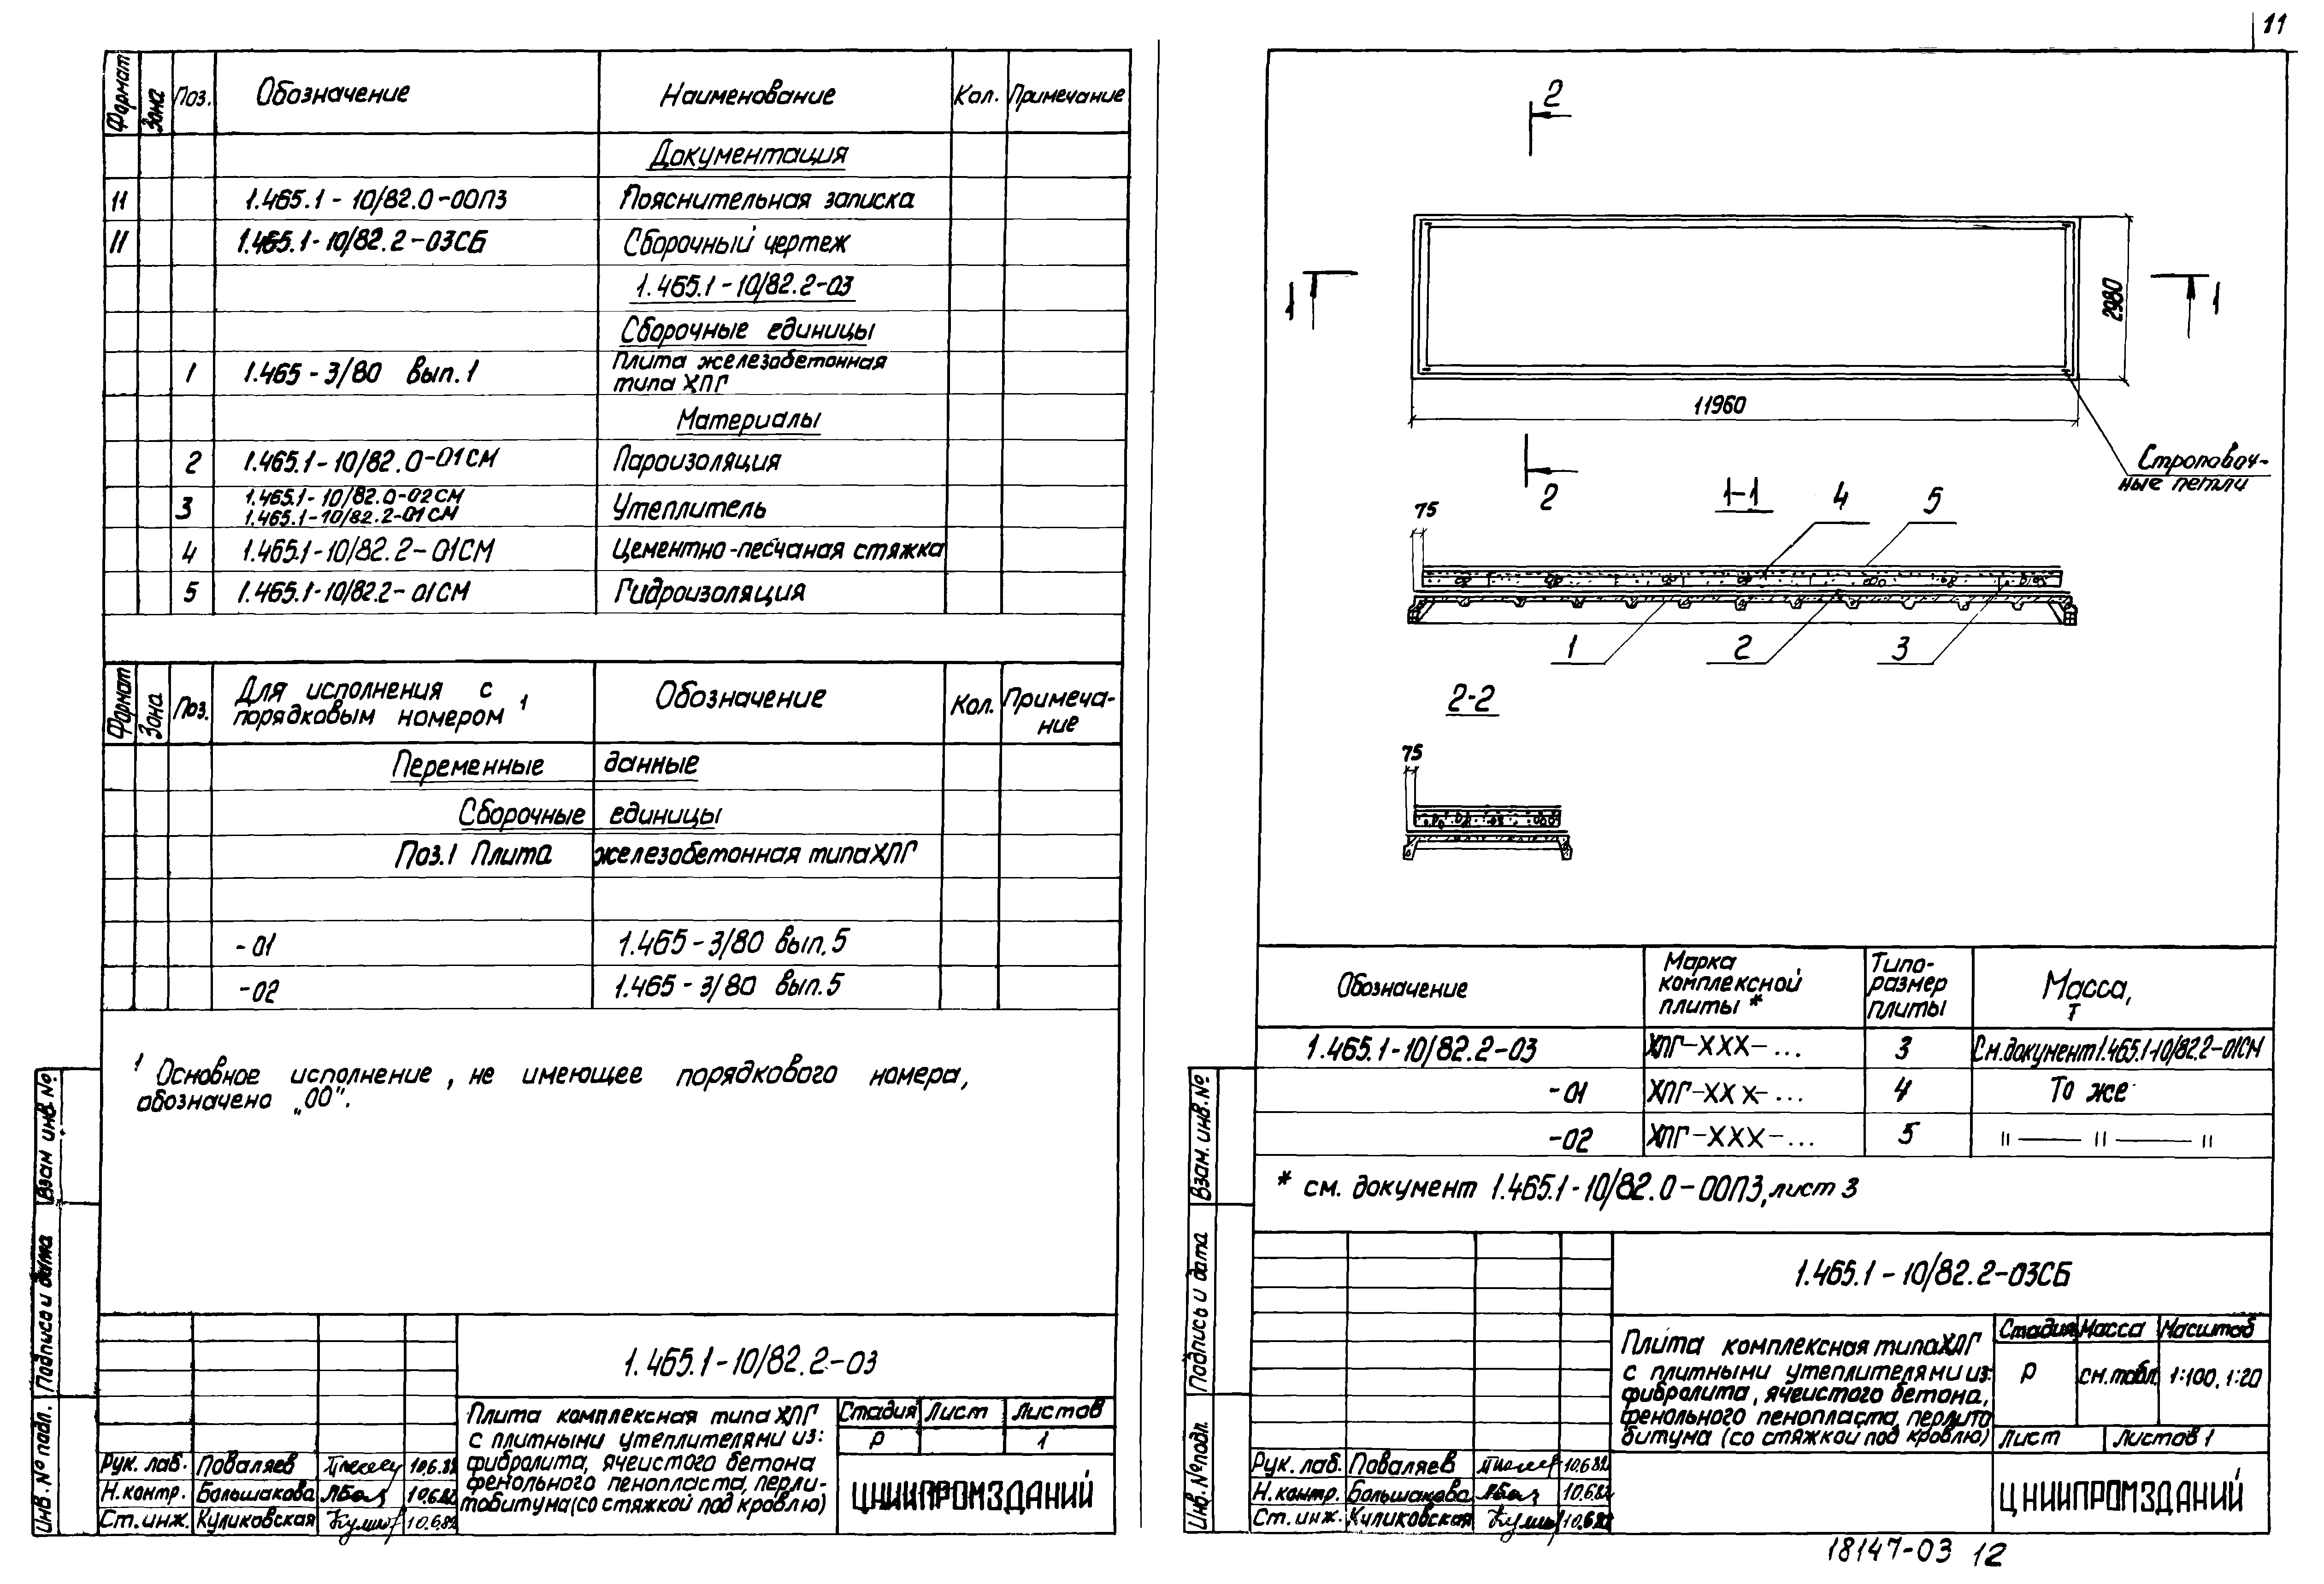 11
Формат Зона Поз. Обозначение Наименование Кол. Примечание
Документация
11 1.465.1-10/82.0-00ПЗ Пояснительная записка
11 1.465.1-10/82.2-03СБ Сборочный чертеж
1.465.1-10/82.2-03
Сборочные единицы
1 1.465-3/80 вып.1 Плита железобетонная
типа ХПГ
Материалы
2 1.465.1-10/82.0-01СМ Пароизоляция
3 1.465.1-10/82.0-02СМ Утеплитель
1.465.1-10/82.2-01СМ
4 1.465.1-10/82.2-01СМ Цементно-песчаная стяжка
5 1.465.1-10/82.2-01СМ Гидроизоляция
Формат Зона Поз. Для исполнения с порядковым номером 1 Обозначение Кол. Примеча-
ние
Переменные данные
Сборочные единицы
Поз.1 Плита железобетонная типа ХПГ
-01 1.465-3/80 вып.5
-02 1.465-3/80 вып.5
1 Основное исполнение, не имеющее порядкового номера,
обозначено „00".
Взам инв.№
Подпись и дата
Инв.№ подл.
1.465.1-10/82.2-03
Плита комплексная типа ХПГ
с плитными утеплителями из:
фибролита, ячеистого бетона
фенольного пенопласта, перли-
тобитума (со стяжкой под кровлю)
Стадия Лист Листов
Р 1
ЦНИИПРОМЗДАНИЙ
Рук. лаб. Поваляев 10.6.82
Н.контр. Большакова 10.6.82
Ст.инж. Куликовская 10.6.82
2
1 1
2980
11960
2
Строповоч-
ные петли
1-1
75 4 5
1 2 3
2-2
75
Обозначение Марка комплексной плиты * Типо-
размер плиты Масса, т
1.465.1-10/82.2-03 ХПГ-ХХХ-... 3 См.документ 1.465.1-10/82.2-01СМ
-01 ХПГ-ХХХ-... 4 То же
-02 ХПГ-ХХХ-... 5 " — " — "
* см. документ 1.465.1-10/82.0-00ПЗ, лист 3
Взам. инв.№
Подпись и дата
Инв.№ подл.
1.465.1-10/82.2-03СБ
Плита комплексная типа ХПГ
с плитными утеплителями из:
фибролита, ячеистого бетона,
фенольного пенопласта, перлито
битума (со стяжкой под кровлю)
Стадия Масса Масштаб
Р см.табл. 1:100, 1:20
Лист Листов 1
ЦНИИПРОМЗДАНИЙ
Рук. лаб. Поваляев 10.6.82
Н.контр. Большакова 10.6.82
Ст.инж. Куликовская 10.6.82
18147-03 12